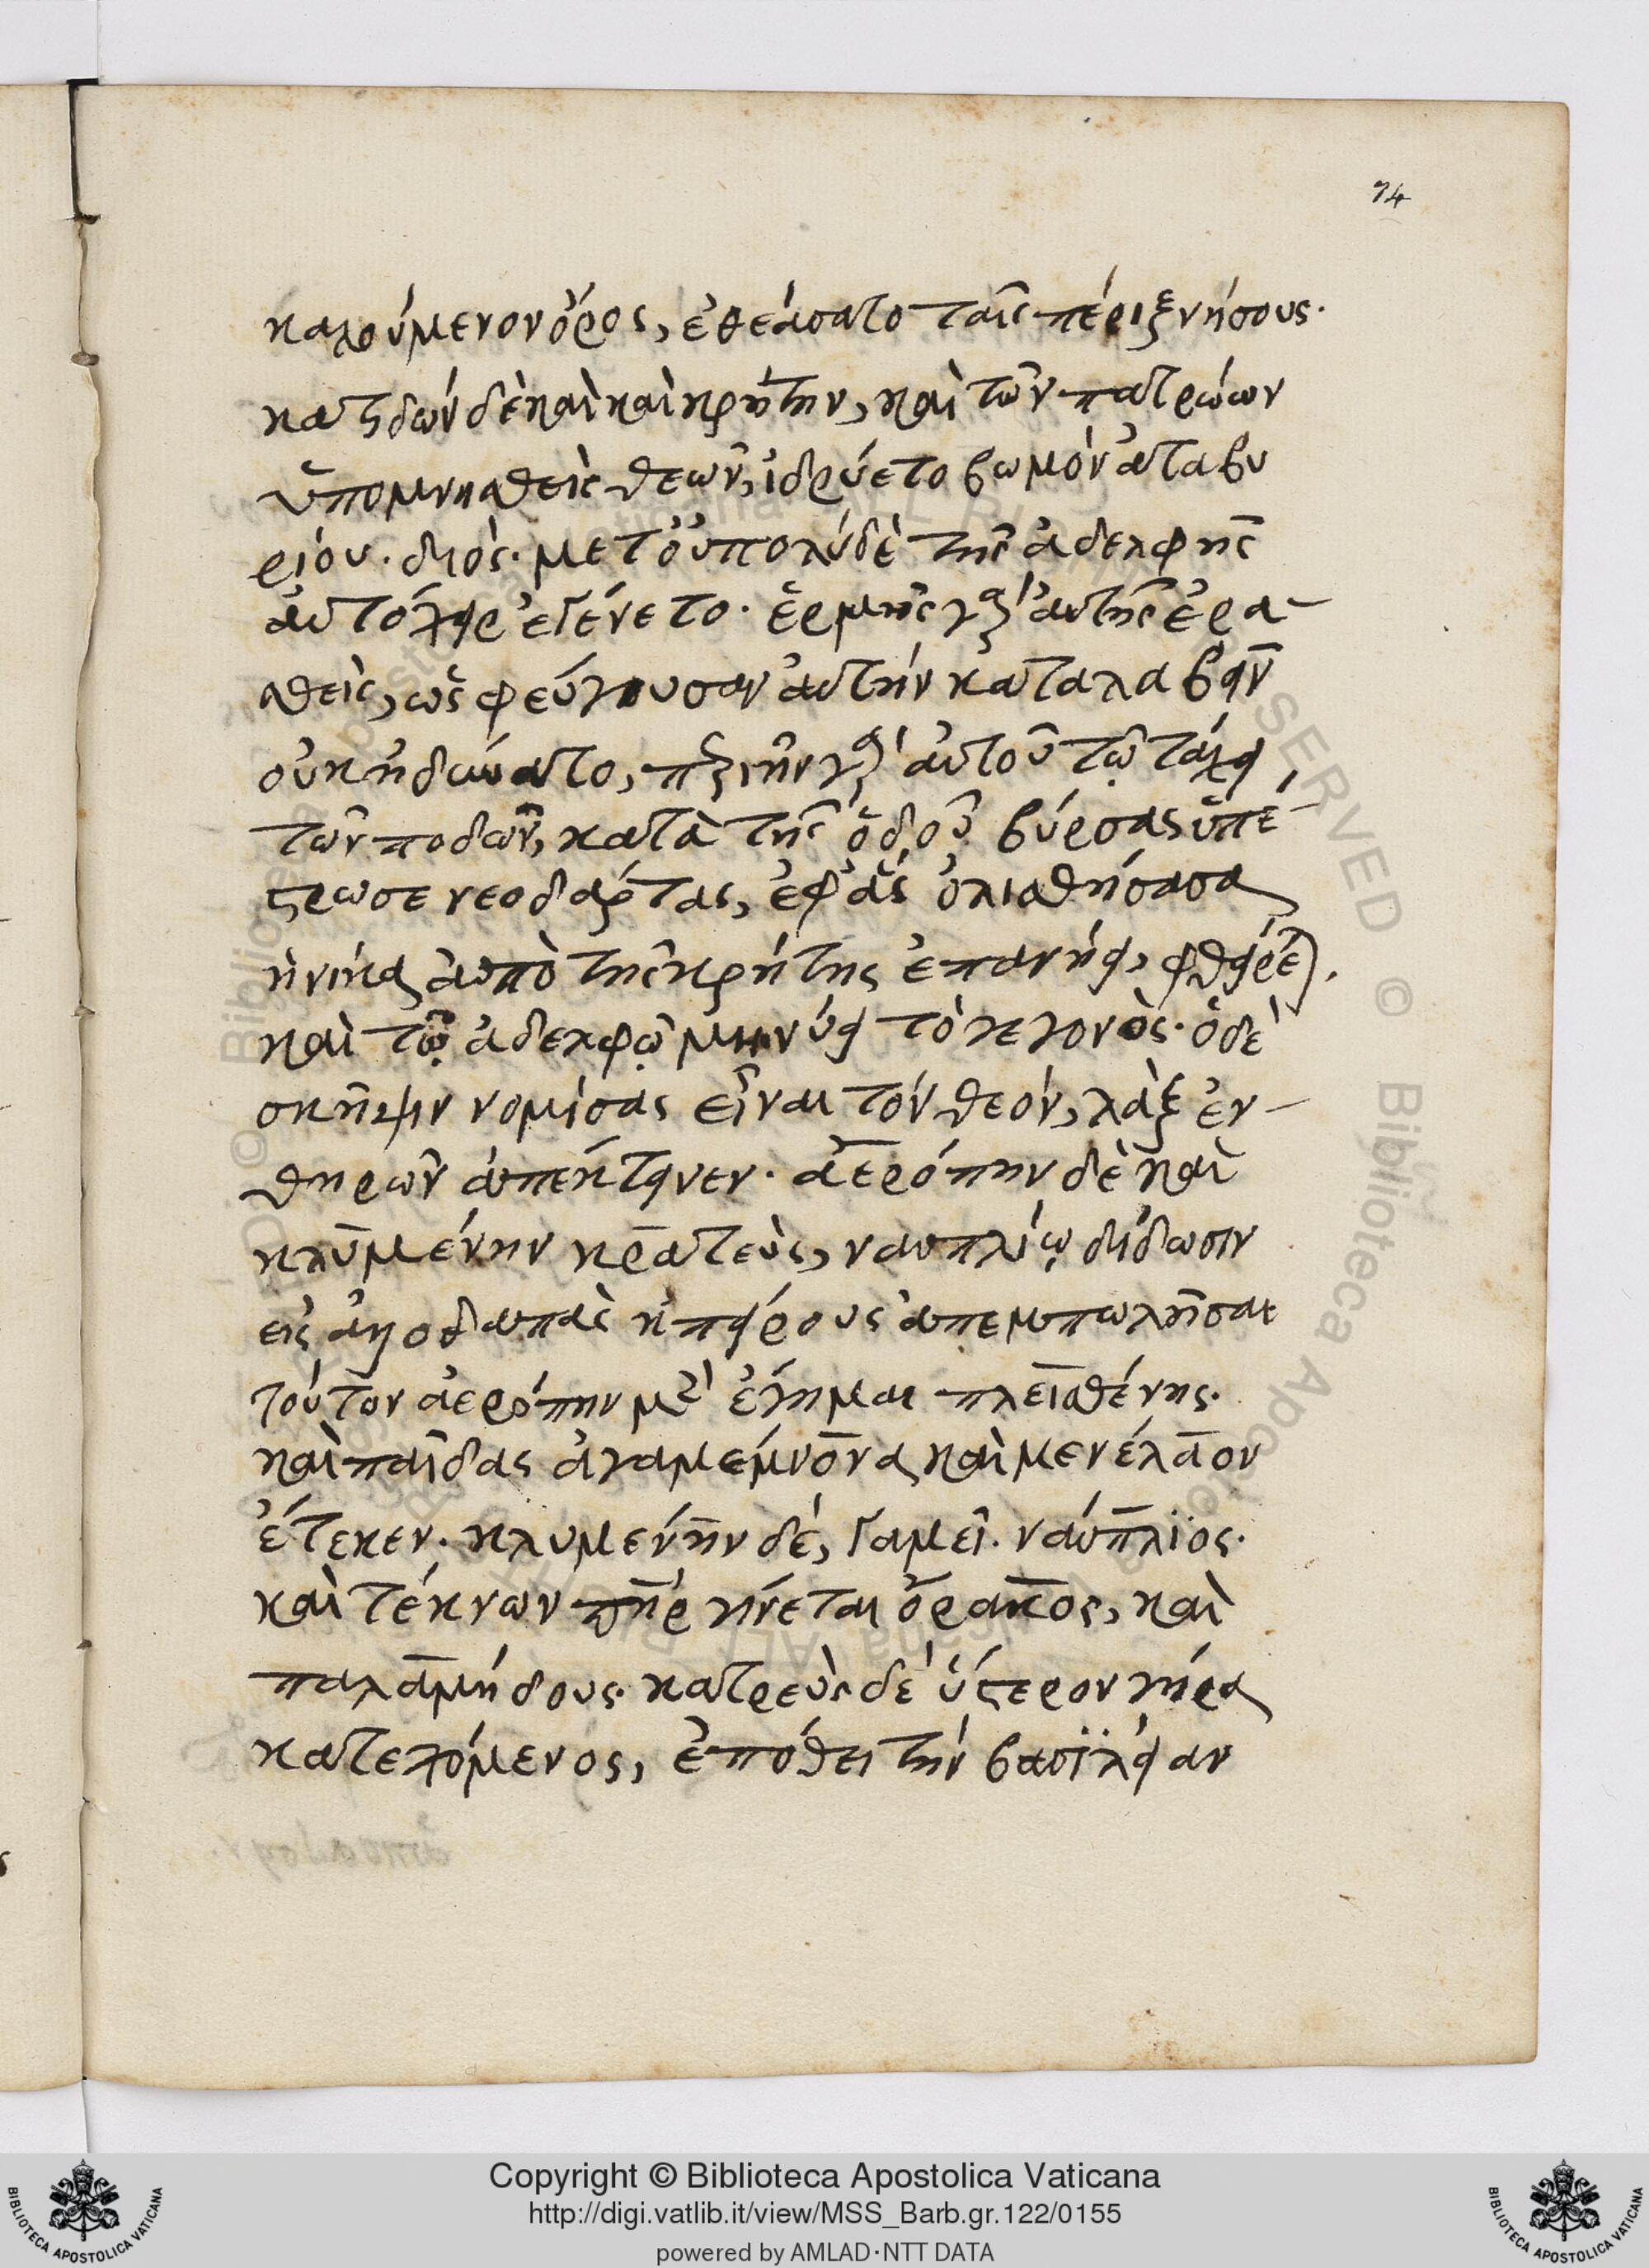 74
καλούμενον ὄρος, ἐθεάσατο ταῖς πέριξ νήσους·
κατιδὼν δὲ καὶ καὶ κρήτην, καὶ τῶν πατρώων
ὑπομνησθεὶς θεῶν, ἱδρύετο βωμὸν ἀταβυ
ρίου· διὸς· μετ' οὐ πολὺ δὲ τῆς ἀδελφῆς
αὐτόχειρ ἐγένετο· ἑρμῆς γὰρ αὐτῆς ἐρα-
σθεὶς, ὡς φεύγουσαν αὐτὴν καταλαβεῖν
οὐκ ἠδύνατο, περιῆν γὰρ αὐτοῦ τῷ τάχει
τῶν ποδῶν, κατὰ τῆς ὁδοῦ βύρσας ὑπέ-
στρωσε νεοδάρτας, ἐφ' ἃς ὀλισθήσασα
ἡνίκα ἀπὸ τῆς κρήτης ἐπανήει, φθείρεται.
καὶ τῷ ἀδελφῷ μηνύει τὸ γεγονὸς· ὁ δὲ
σκῆψιν νομίσας εἶναι τὸν θεὸν, λὰξ ἐν-
θηρῶν ἀπέκτεινεν· ἀερόπην δὲ καὶ
κλυμένην κρατεὺς, ναυπλίῳ δίδωσιν
εἰς ἀλλοδαπὰς ἠπείρους ἀπεμπωλῆσαι
τούτον ἀερόπην μὲν ἔγημαι πλεισθένης·
καὶ παῖδας ἀγαμέμνονα καὶ μενέλαον
ἔτεκεν· κλυμένην δὲ, γαμεῖ· ναύπλϊος·
καὶ τέκνων πὴρ γίνεται ὄρακος, καὶ
παλαμήδους· κατρεὺς δὲ ὕστερον γήρα
κατεχόμενος, ἐπόθει τὴν βασϊλείαν
Copyright © Biblioteca Apostolica Vaticana
http://digi.vatlib.it/view/MSS_Barb.gr.122/0155
powered by AMLAD·NTT DATA
BIBLIOTECA APOSTOLICA VATICANA
BIBLIOTECA APOSTOLICA VATICANA